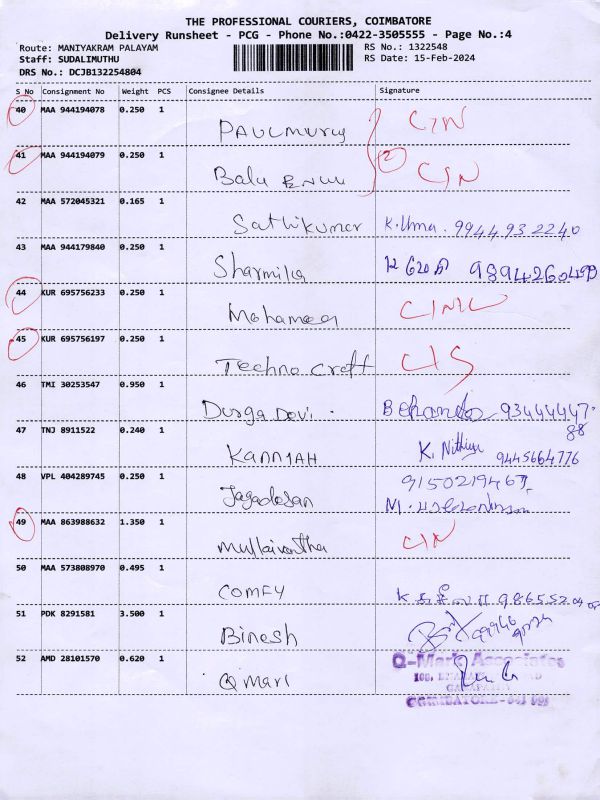 THE PROFESSIONAL COURIERS, COIMBATORE
Delivery Runsheet - PCG - Phone No.:0422-3505555 - Page No.:4
Route: MANIYAKRAM PALAYAM RS No.: 1322548
Staff: SUDALIMUTHU RS Date: 15-Feb-2024
DRS No.: DCJB132254804
S_No Consignment No Weight PCS Consignee Details Signature
40 MAA 944194078 0.250 1
PAULMURUG CIN
41 MAA 944194079 0.250 1 2
Balu CIN
42 MAA 572045321 0.165 1
Sathikumar K.Uma. 9944932240
43 MAA 944179840 0.250 1
Sharmila
44 KUR 695756233 0.250 1
Mohameed
45 KUR 695756197 0.250 1
Techno Craft CIS
46 TMI 30253547 0.950 1
Durga Dovi. 93444447
88
47 TNJ 8911522 0.240 1
KANNIAH K. Nithiya 9445664776
48 VPL 404289745 0.250 1 9150219467,
Jagadesan
49 MAA 863988632 1.350 1
CIN
50 MAA 573808970 0.495 1
COMFY
51 PDK 8291581 3.500 1
Binesh
52 AMD 28101570 0.620 1 Q-Mark Associates
Q Mari
COIMBATORE